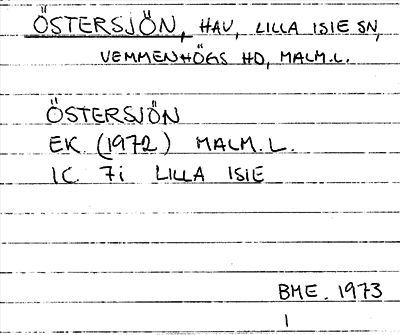 ÖSTERSJÖN, HAV, LILLA ISIE SN,
VEMMENHÖGS HD, MALM.L.
ÖSTERSJÖN
EK (1972) MALM.L.
1C 7i LILLA ISIE
BME. 1973
1